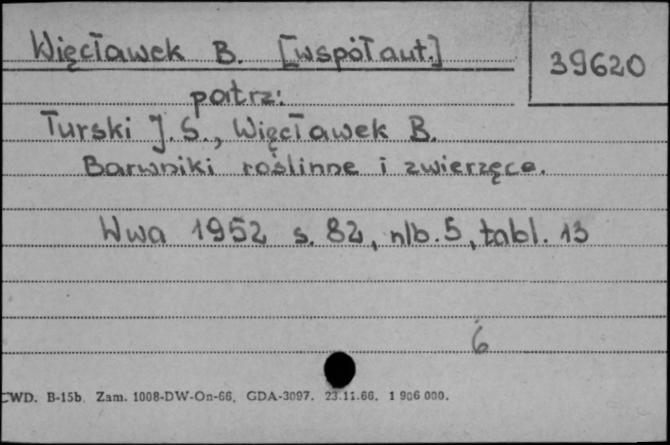 Więcławek B. [współaut.]
39620
patrz:
Turski J. S., Więcławek B.
Barwniki roślinne i zwierzęce.
Wwa 1952 s. 82, nlb. 5, tabl. 13
6
CWD. B-15b. Zam. 1008-DW-On-66. GDA-3097. 23.11.66. 1 906 000.